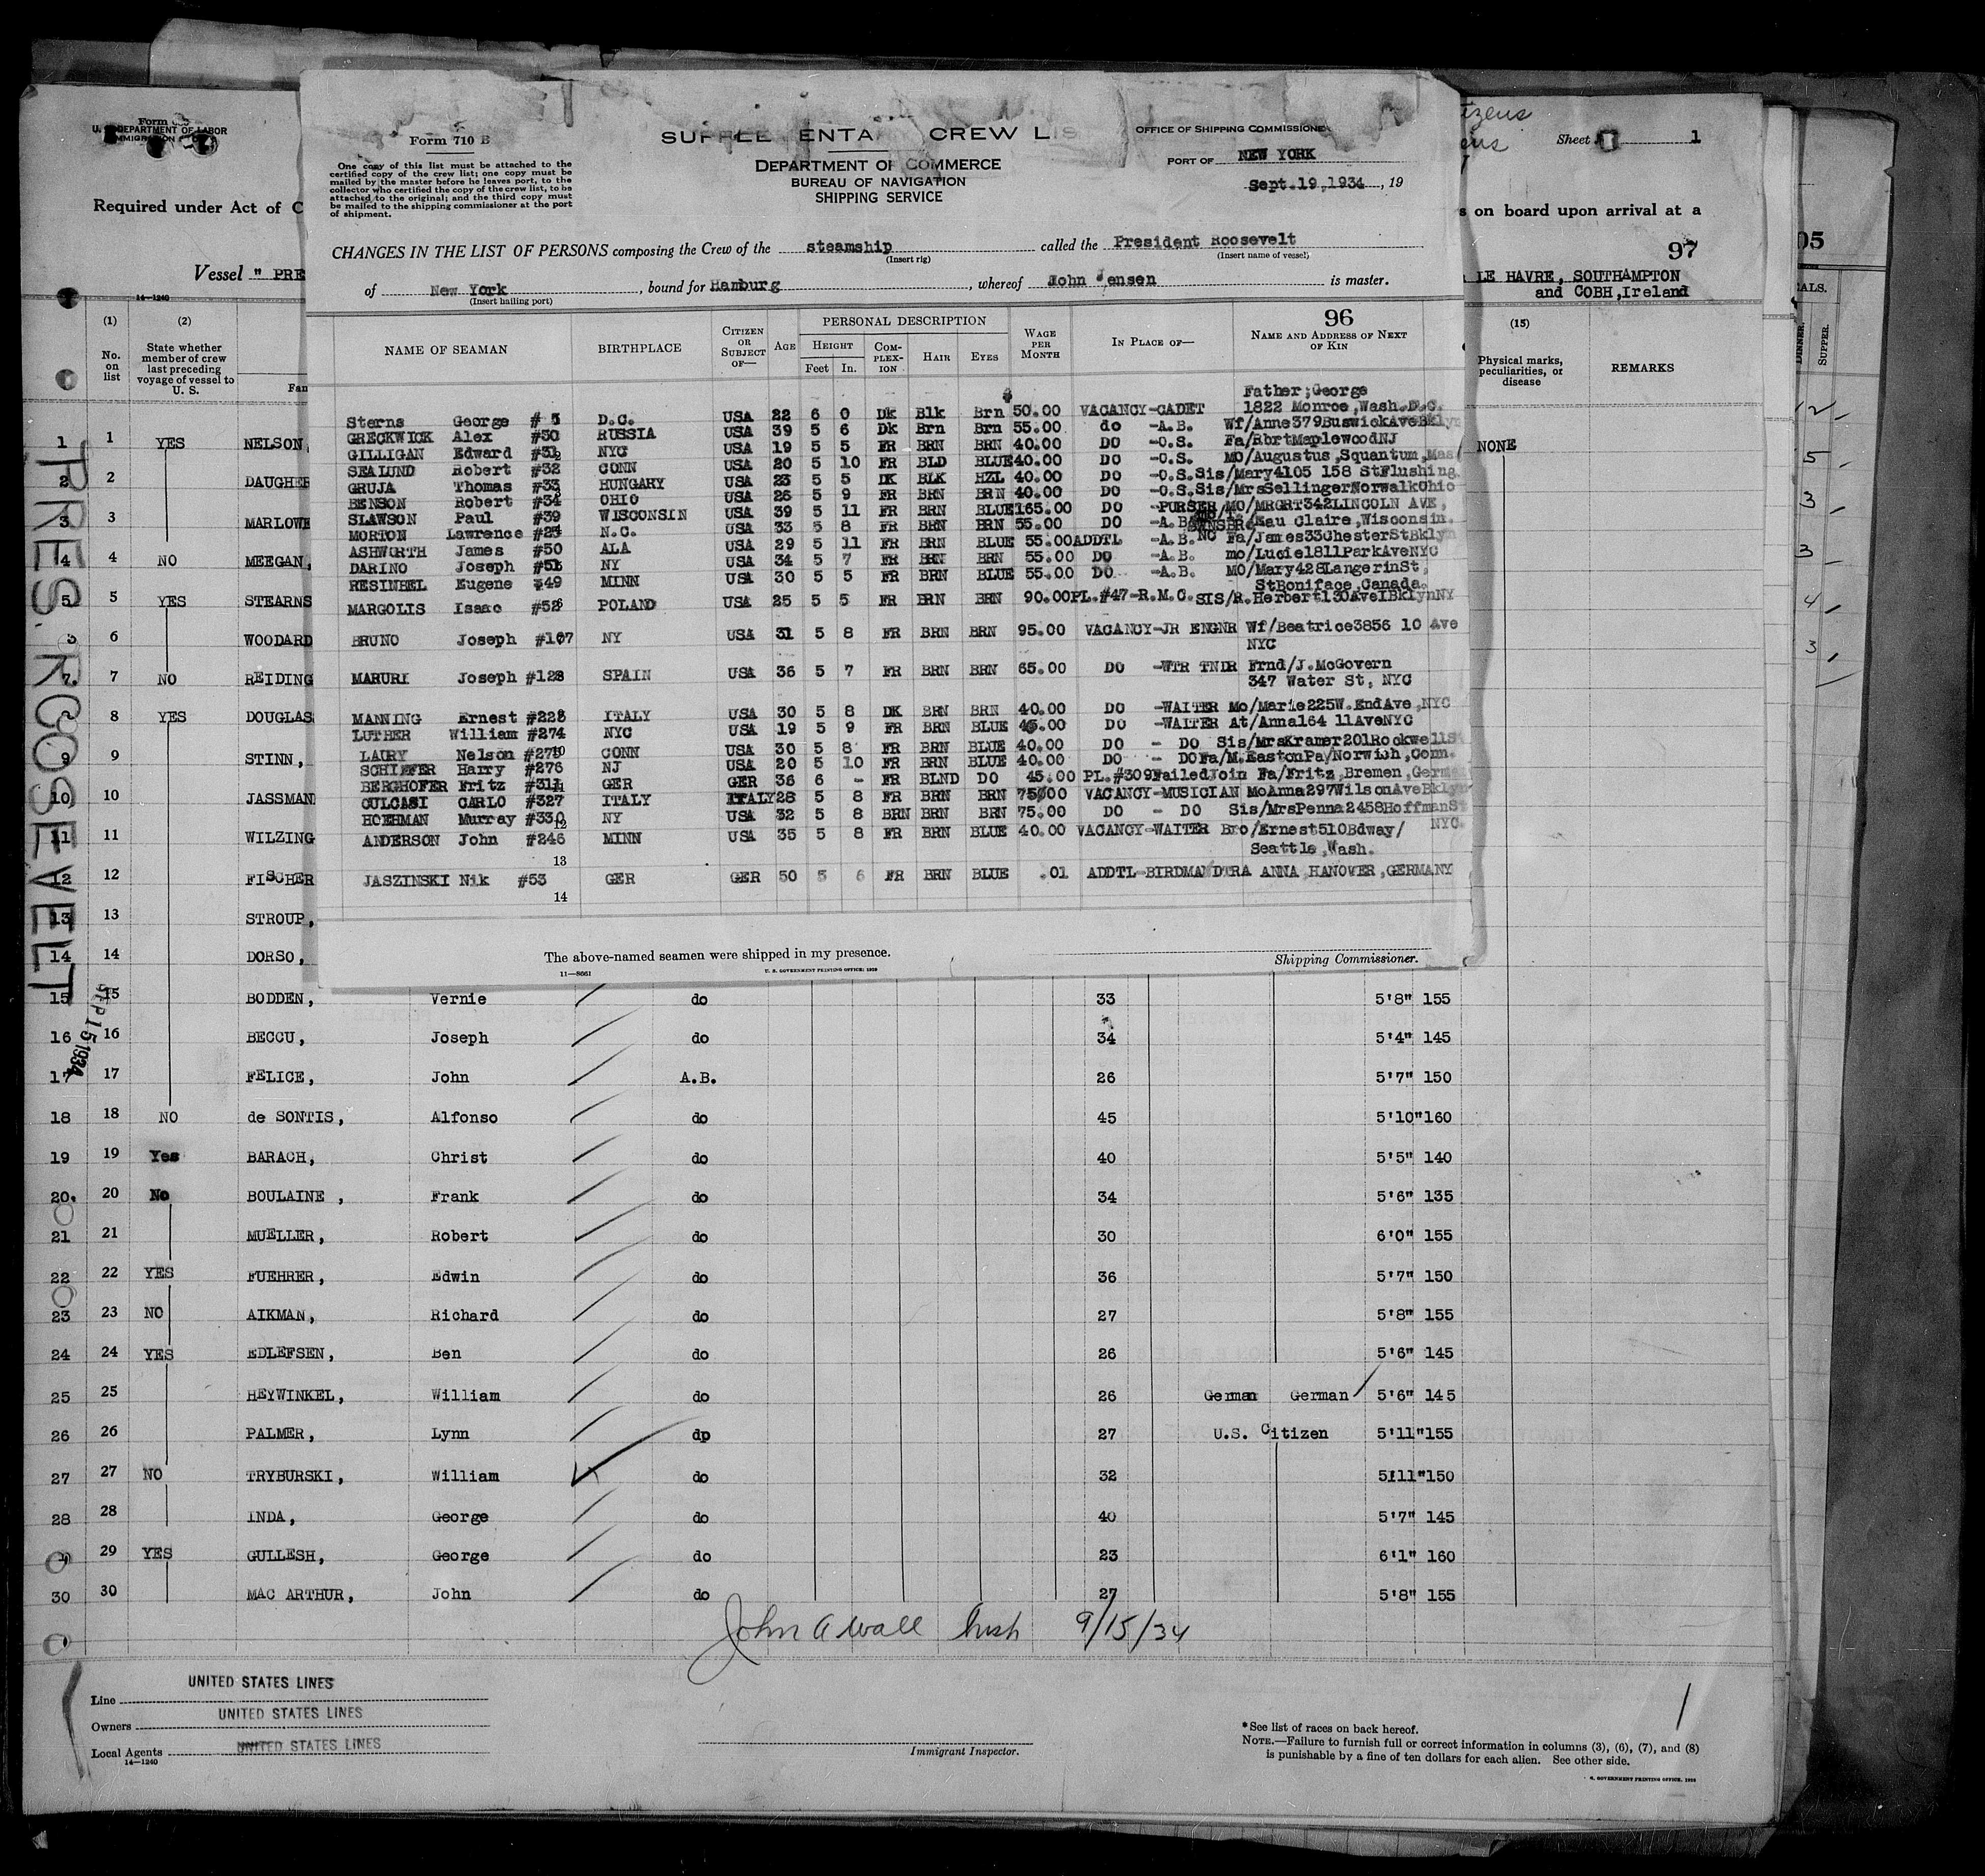 Form
U. S. DEPARTMENT OF LABOR
Required under Act of C
Vessel " PRE
14—1240
(1)
No. on list
(2)
State whether member of crew last preceding voyage of vessel to U. S.
Form 710 B
One copy of this list must be attached to the
certified copy of the crew list; one copy must be
mailed by the master before he leaves port, to the
collector who certified the copy of the crew list, to be
attached to the original; and the third copy must
be mailed to the shipping commissioner at the port
of shipment.
DEPARTMENT OF COMMERCE
BUREAU OF NAVIGATION
SHIPPING SERVICE
OFFICE OF SHIPPING COMMISSIONE
PORT OF NEW YORK
Sept.19,1934, 19
CHANGES IN THE LIST OF PERSONS composing the Crew of the steamship called the President Roosevelt
(Insert rig) (Insert name of vessel)
of New York, bound for Hamburg, whereof John Jensen is master.
(Insert hailing port)
96
NAME OF SEAMAN BIRTHPLACE CITIZEN OR SUBJECT OF— AGE PERSONAL DESCRIPTION HEIGHT Feet In. COM-PLEX-ION HAIR EYES WAGE PER MONTH IN PLACE OF— NAME AND ADDRESS OF NEXT OF KIN
Father;George
Sterns George # 5 D.C. USA 22 6 0 Dk Blk Brn 50.00 VACANCY-CADET 1822 Monroe,Wash.D.C.
GRECKWICK Alex #30 RUSSIA USA 39 5 6 Dk Brn Brn 55.00 do -A.B. Wf/Anne379BuswickAveBklyn
GILLIGAN Edward #31 NYC USA 19 5 5 FR BRN BRN 40.00 DO -O.S. Fa/RbrtMaplewoodNJ
SEALUND Robert #32 CONN USA 20 5 10 FR BLD BLUE 40.00 DO -O.S. MO/Augustus,Squantum,Mas
GRUJA Thomas #33 HUNGARY USA 23 5 5 DK BLK HZL 40.00 DO -O.S. Sis/Mary4105 158 StFlushing
BENSON Robert #34 OHIO USA 26 5 9 FR BRN BRN 40.00 DO -O.S. Sis/MrsSellingerNorwalkOhio
SLAWSON Paul #39 WISCONSIN USA 39 5 11 FR BRN BLUE 165.00 DO -PURSER MO/MRGRT342LINCOLN AVE,
Eau Claire,Wisconsin.
MORTON Lawrence N.C. USA 33 5 8 FR BRN BRN 55.00 DO -A.B.
ASHWORTH James #50 ALA USA 29 5 11 FR BRN BLUE 55.00 ADDTL -A.B. Fa/James33ChesterStBklyn
DARINO Joseph NY USA 34 5 7 FR BRN BRN 55.00 DO -A.B. mo/Lucie1811ParkAveNYC
RESINBEL Eugene #49 MINN USA 30 5 5 FR BRN BLUE 55.00 DO -A.B. MO/Mary428LangerinSt,
StBoniface,Canada.
MARGOLIS Isaac #52 POLAND USA 25 5 5 FR BRN BRN 90.00 PL.#47-R.M.C. SIS/R.Herbert130AveIBklynNY
BRUNO Joseph #107 NY USA 31 5 8 FR BRN BRN 95.00 VACANCY-JR ENGNR Wf/Beatrice3856 10 Ave
NYC
MARURI Joseph #128 SPAIN USA 36 5 7 FR BRN BRN 65.00 DO -WTR TNDR Frnd/J.McGovern
347 Water St, NYC
MANNING Ernest #228 ITALY USA 30 5 8 DK BRN BRN 40.00 DO -WAITER Mo/Marie225W.EndAve,NYC
LUTHER William #274 NYC USA 19 5 9 FR BRN BLUE DO -WAITER At/Anna164 11AveNYC
LAURY Nelson CONN USA 30 5 8 FR BRN BLUE 40.00 DO - DO Sis/MrsKramer201RockwellSt
Norwish,Conn.
SCHIFFER Harry #276 NJ USA 20 5 10 FR BRN BLUE 40.00 DO - DO Fa/M.EastonPa/
BERGHOFER Fritz #311 GER GER 36 6 - FR BLND DO 45.00 PL.#309FailedJoin Fa/Fritz,Bremen,German
CULCASI CARLO #327 ITALY ITALY 28 5 8 FR BRN BRN 75.00 VACANCY-MUSICIAN MoAnna297WilsonAveBklyn
HOEHMAN Murray #330 NY USA 32 5 8 BRN BRN BRN 75.00 DO - DO Sis/MrsPenna2458HoffmanSt
NYC.
ANDERSON John #246 MINN USA 35 5 8 FR BRN BLUE 40.00 VACANCY-WAITER Bro/Ernest510Bdway/
Seattle,Wash.
13
JASZINSKI Nik #53 GER GER 50 5 6 FR BRN BLUE .01 ADDTL-BIRDMAN DTRA ANNA,HANOVER,GERMANY
14
The above-named seamen were shipped in my presence.
Shipping Commissioner.
11—8661
U. S. GOVERNMENT PRINTING OFFICE: 1929
Sheet 1
s on board upon arrival at a
97
LE HAVRE, SOUTHAMPTON
and COBH,Ireland
(15)
Physical marks, peculiarities, or disease
REMARKS
NONE
05
DINNER.
SUPPER.
PRES ROOSEVELT
SEP 15 1934
1 1 YES NELSON,
2 2 DAUGHER
3 3 MARLOWE
4 4 NO MEEGAN,
5 5 YES STEARNS
6 WOODARD
7 7 NO REIDING
8 YES DOUGLAS
9 9 STINN,
10 10 JASSMAN
11 11 WILZING
12 12 FISCHER
13 13 STROUP,
14 14 DORSO,
15 15 BODDEN, Vernie do 33 5'8" 155
16 16 BECCU, Joseph do 34 5'4" 145
17 17 FELICE, John A.B. 26 5'7" 150
18 18 NO de SONTIS, Alfonso do 45 5'10" 160
19 19 Yes BARACH, Christ do 40 5'5" 140
20 20 No BOULAINE , Frank do 34 5'6" 135
21 21 MUELLER, Robert do 30 6'0" 155
22 22 YES FUEHRER, Edwin do 36 5'7" 150
23 23 NO AIKMAN, Richard do 27 5'8" 155
24 24 YES EDLEFSEN, Ben do 26 5'6" 145
25 25 HEYWINKEL, William do 26 German German 5'6" 145
26 26 PALMER, Lynn dp 27 U.S. Citizen 5'11" 155
27 27 NO TRYBURSKI, William do 32 5111" 150
28 28 INDA, George do 40 5'7" 145
29 YES GULLESH, George do 23 6'1" 160
30 30 MAC ARTHUR, John do 27 5'8" 155
John A Wall Insp 9/15/34
Line UNITED STATES LINES
Owners UNITED STATES LINES
Local Agents UNITED STATES LINES
14—1240
Immigrant Inspector.
*See list of races on back hereof.
NOTE.—Failure to furnish full or correct information in columns (3), (6), (7), and (8)
is punishable by a fine of ten dollars for each alien. See other side.